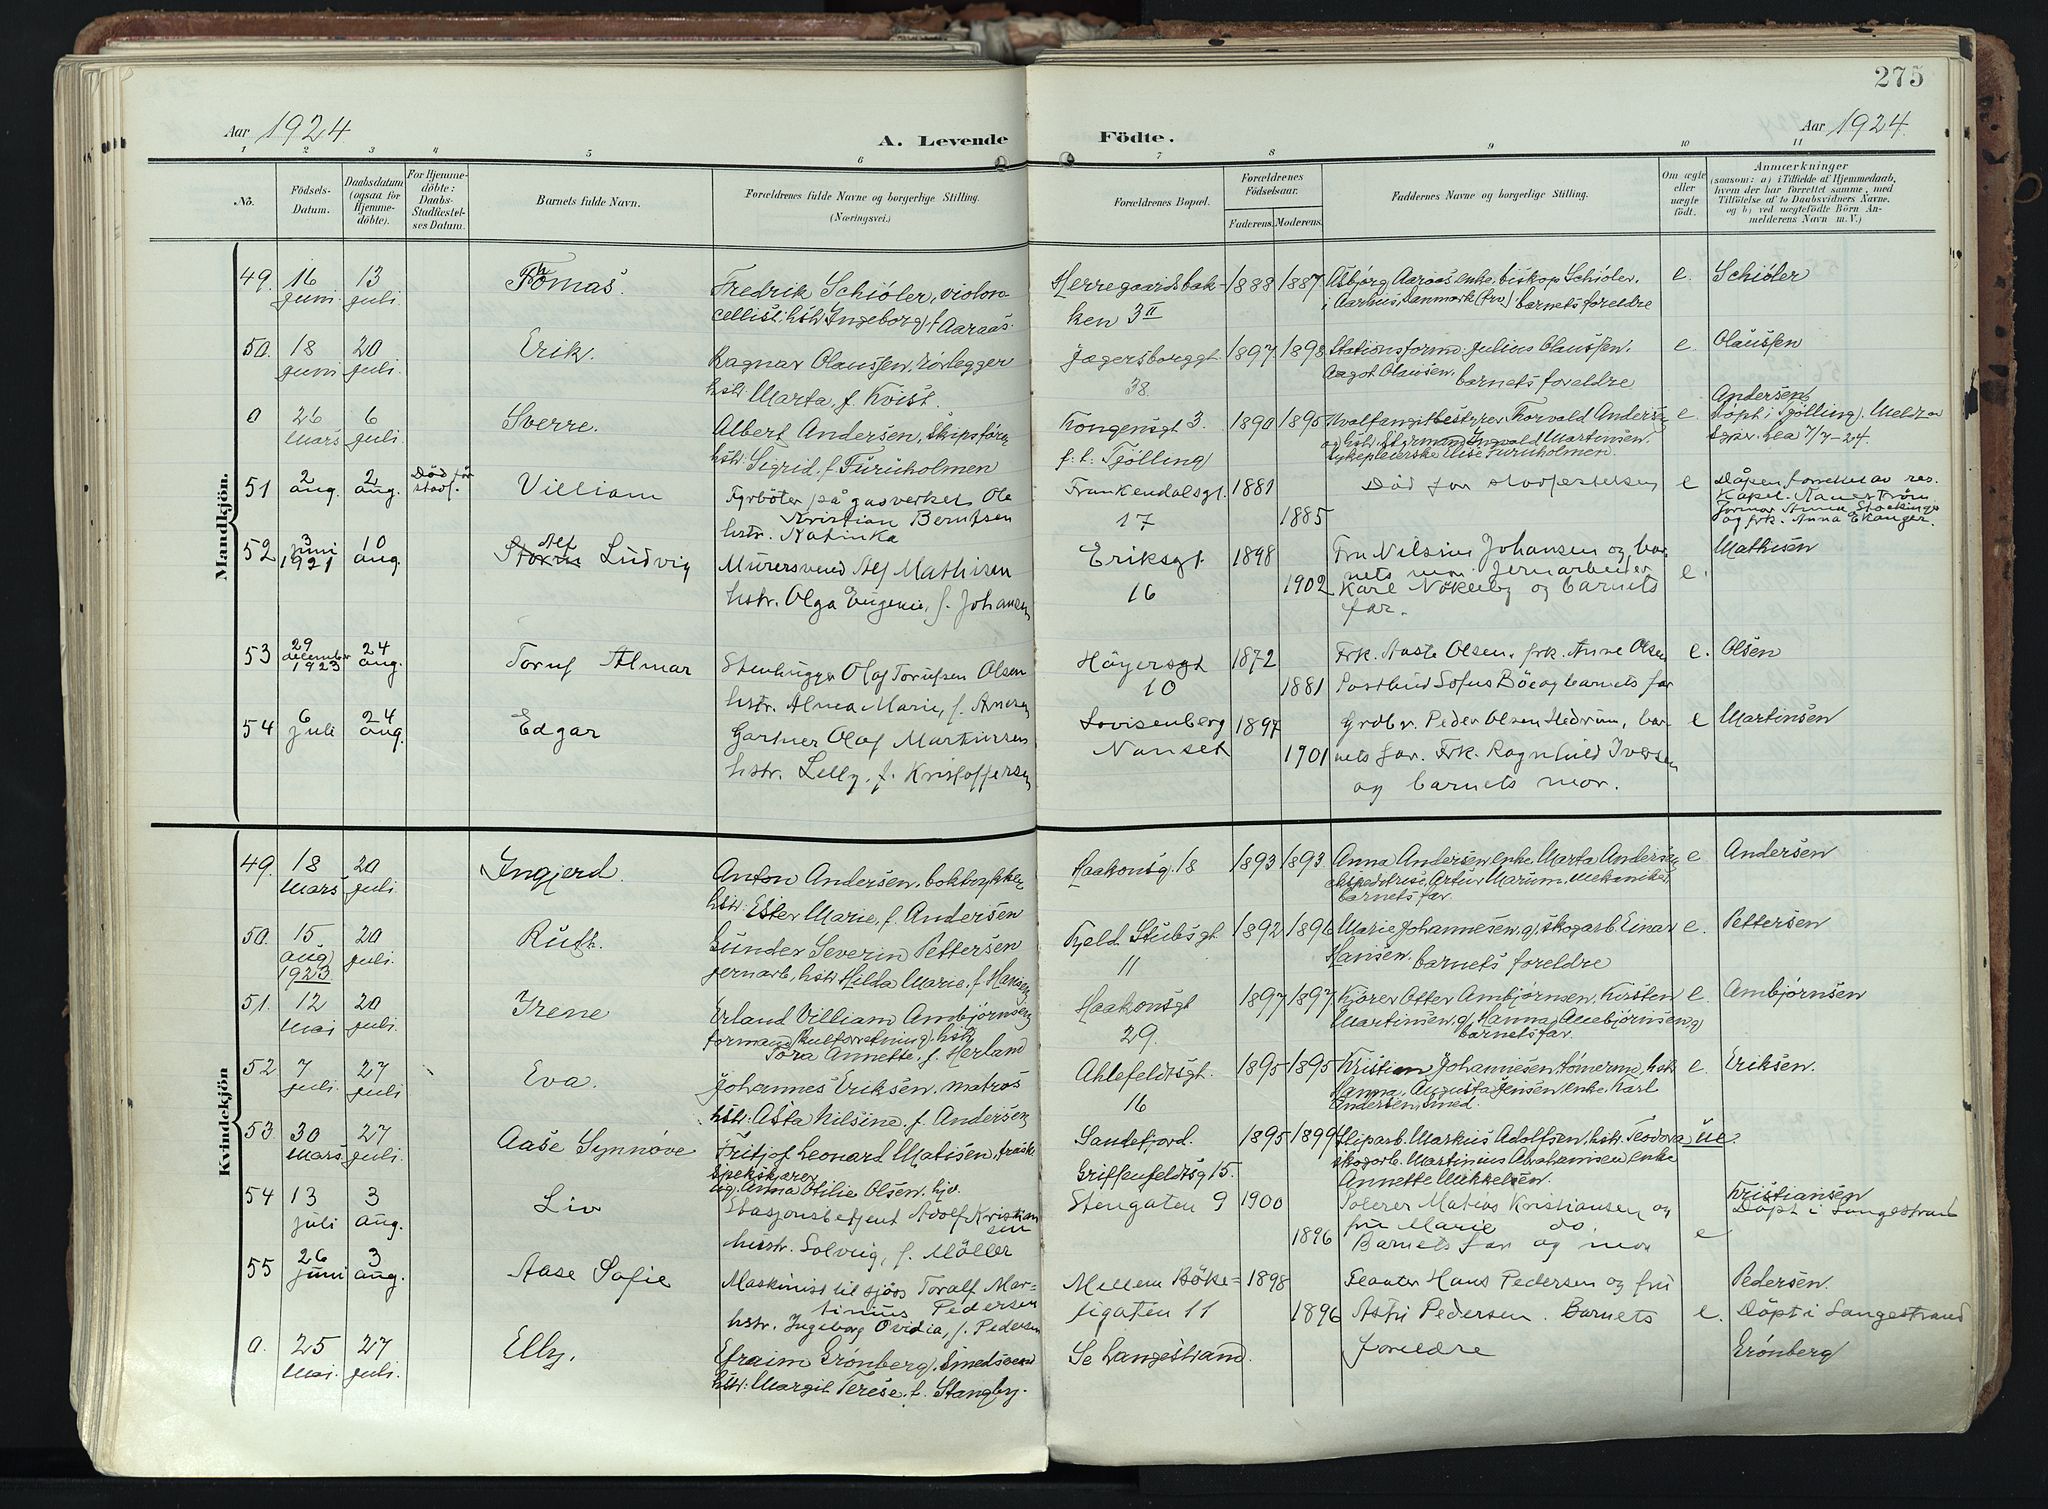 275
Aar 1924
A. Levende Födte.
Aar 1924.
1 2 3 4 5 6 7 8 9 10 11
No.
Födsels-
Datum.
Daabsdatum
(ogsaa for
Hjemme-
döbte).
For Hjemme-
döbte:
Daabs-
Stadfæstel-
ses Datum.
Barnets fulde Navn.
Forældrenes fulde Navne og borgerlige Stilling.
(Næringsvei.)
Forældrenes Bopæl.
Forældrenes
Födselsaar.
Faderens. Moderens.
Faddernes Navne og borgerlige Stilling.
Om ægte
eller
uægte
födt.
Anmærkninger
(saasom: a) i Tilfælde af Hjemmedaab,
hvem der har forrettet samme, med
Tilföielse af to Daabsvidners Navne.
og b) ved uegtefödte Börn An-
melderens Navn m. V.)
Mandkjön.
49. 16 juni 13 juli Thomas.
Fredrik Schiöler, violon-
cellist. hstr Ingeborg f. Aaraas.
Herregaardsbak-
ken 3 II
1888 1887
Asbjörg Aaraas, enke, biskop Schiöler,
i Aarhus, Danmark (frv) barnets foreldre
e. Schiöler
50. 18 juni 20 juli. Erik.
Ragnar Olaussen, rörlegger
hstr. Marta, f. Kvist.
Jægersborggt.
38.
1897 1898
Stationsform. Julius Olaussen.
Aagot Olausen, barnets foreldre
e. Olaussen
0 26 mars 6 juli. Sverre.
Albert Andersen, skipsförer
hstr. Sigrid, f. Furuholmen
Kongensgt 3.
f. t. Tjölling
1890 1895
Hvalfangstbestyrer Thorvald Andersen
og hstr. Styrmand Ingvald Martinsen.
sykepleierske Elise Furuholmen.
e. Andersen
Döpt i Tjölling.
7/7-24.
51 2 aug. 2 aug. Död før stadf. Villiam
Fyrböter på gasverket Ole
Kristian Berntsen
hstr. Katinka
Frankendalsgt.
17
1881 1885
Död før stadfestelsen
e Dåpen forrettet av res.
Kapel.
og frk. Anna Ekanger.
52 3 juni 1921 10 aug. Alf Ludvig
Murersvend Alf Mathisen
hstr. Olga Eugenie, f. Johansen
Eriksgt.
16
1898 1902
Fru Nilsine Johansen og bar-
nets mor. Jernarbeider
Karl Nökleby og barnets
far.
e. Mathisen
53 29 december 1923 24 aug. Toruf Almar
Stenhugger Olaf Torufsen Olsen
hstr. Alma Marie, f. Ansen
Höyersgt
10
1872 1881
Frk. Aaste Olsen, frk. Anne Olsen
Postbud Sofus Böe og barnets far
e. Olsen
54 6 juli 24 aug. Edgar
Gartner Olaf Martinsen
hstr. Lelly, f. Kristoffersen
Lovisenberg
Nanset
1897 1901
Grdbr. Peder Olsen Hedrum, bar-
nets far. Frk. Ragnhild Iversen
og barnets mor.
e Martinsen
Kvindekjön
49. 18 mars 20 juli Ingjerd.
Anton Andersen, boktrykker,
hstr: Ester Marie, f. Andersen
Haakonsg. 18
1893 1893
Anna Andersen, enke, Marta Andersen,
ekspeditrise, Artur Marum, mekaniker,
barnets far.
e Andersen
50. 15 aug 1923 20 juli. Ruth.
Gunder Severin Pettersen
jernarb, hstr Hilda Marie, f. Hansen,
Fjeld Stubsgt.
11
1892 1896
Marie Johannesen, g, skogarb Einar
Hansen. barnets foreldre
e. Pettersen
51. 12 mai 20 juli. Irene
Erland Villiam Ambjörnsen,
formand kulforretning, hstr
Tora Annette, f. Herland
Haakonsgt
29.
1897 1897
Kjörer Otter Ambjörnsen, Kirsten
Martinsen, g, Hanna Ambjörnsen, g,
barnets far.
e. Ambjörnsen
52 7 juli. 27 juli Eva.
Johannes Eriksen, matros
hstr: Asta Nilsine, f. Andersen
Ahlefeldtsgt.
16
1895 1895
Kristian Johannesen, tömerm, hstr
Hanna, Augusta Jensen, enke, Karl
Andersen, smed.
e. Eriksen.
53. 30 mars 27 juli. Aase Synnöve
Fritjof Leonard Matisen,
spekskjærer
ug. Anna Otilie Olsen, hjv.
Sandefjord.
Griffenfeldtsg 15.
1895 1899
Sliparb. Markus Adolfsen, hstr. Teodora
skogarb. Martinius Abrahamsen, enke
Annette Mikkelsen.
ue.
54 13 juli 3 aug. Liv
Stasjonsbetjent Adolf Kristian
sen
hustr. Solveig, f. Möller
Stengaten 9
1900 1896
Polerer Matias Kristiansen og
fru Marie do.
Barnets far og mor
e
Kristiansen
Döpt i Langestrand
55 26 juni 3 aug. Aase Sofie
Maskinist til sjöss Toralf Mar-
tinius Pedersen
hstr. Ingeborg Ovidia, f. Pedersen
Mellem Böke-
ligaten 11
1898 1896
Hans Pedersen og fru
Astri Pedersen. Barnets
foreldre
e. Pedersen.
Döpt i Langestrand
0. 25 mai. 27 juli. Elly.
Efraim Grönberg, Smedsvend
hstr: Margit Terese, f. Stangby.
Se Langestrand.
Grönberg